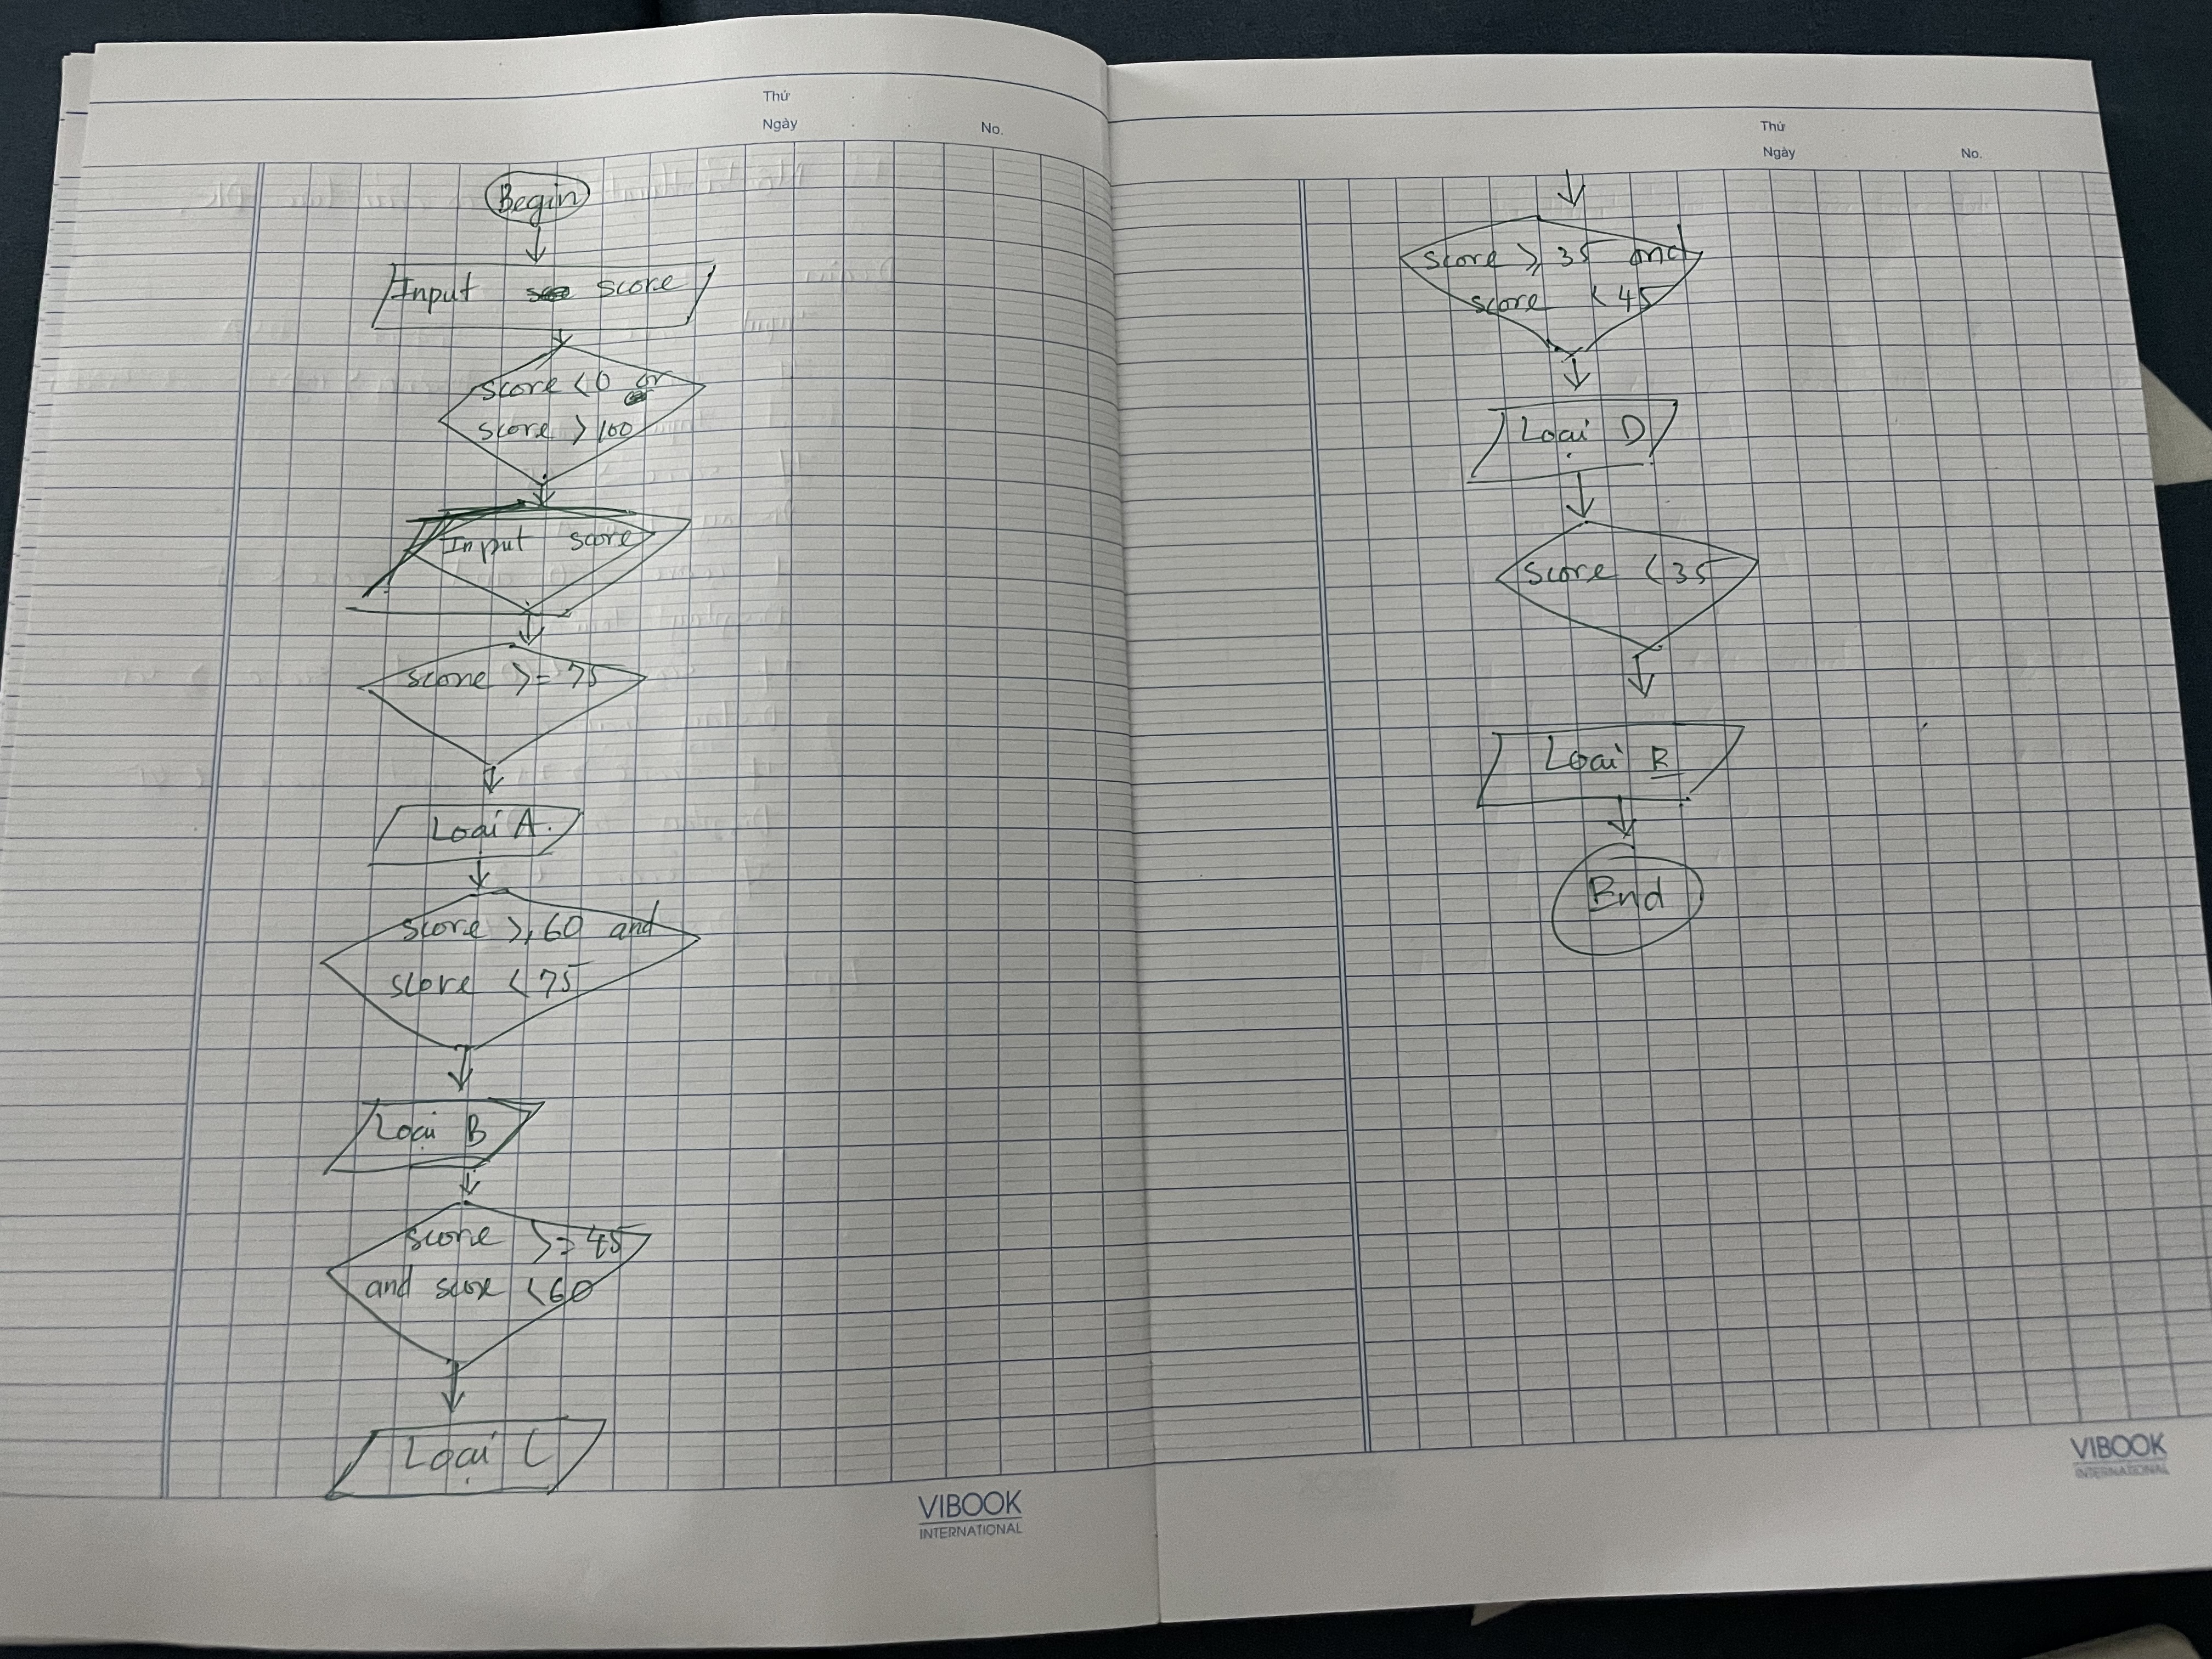 Thứ
Ngày
No.
Begin
Input score
Score < 0 or
score > 100
Input score
score >= 75
Loại A
Score >, 60 and
score < 75
Loại B
score >= 45
and score < 60
Loại C
VIBOOK
INTERNATIONAL
Thứ
Ngày
No.
Score >, 35 and
score < 45
Loại D
Score < 35
Loại E
End
VIBOOK
INTERNATIONAL